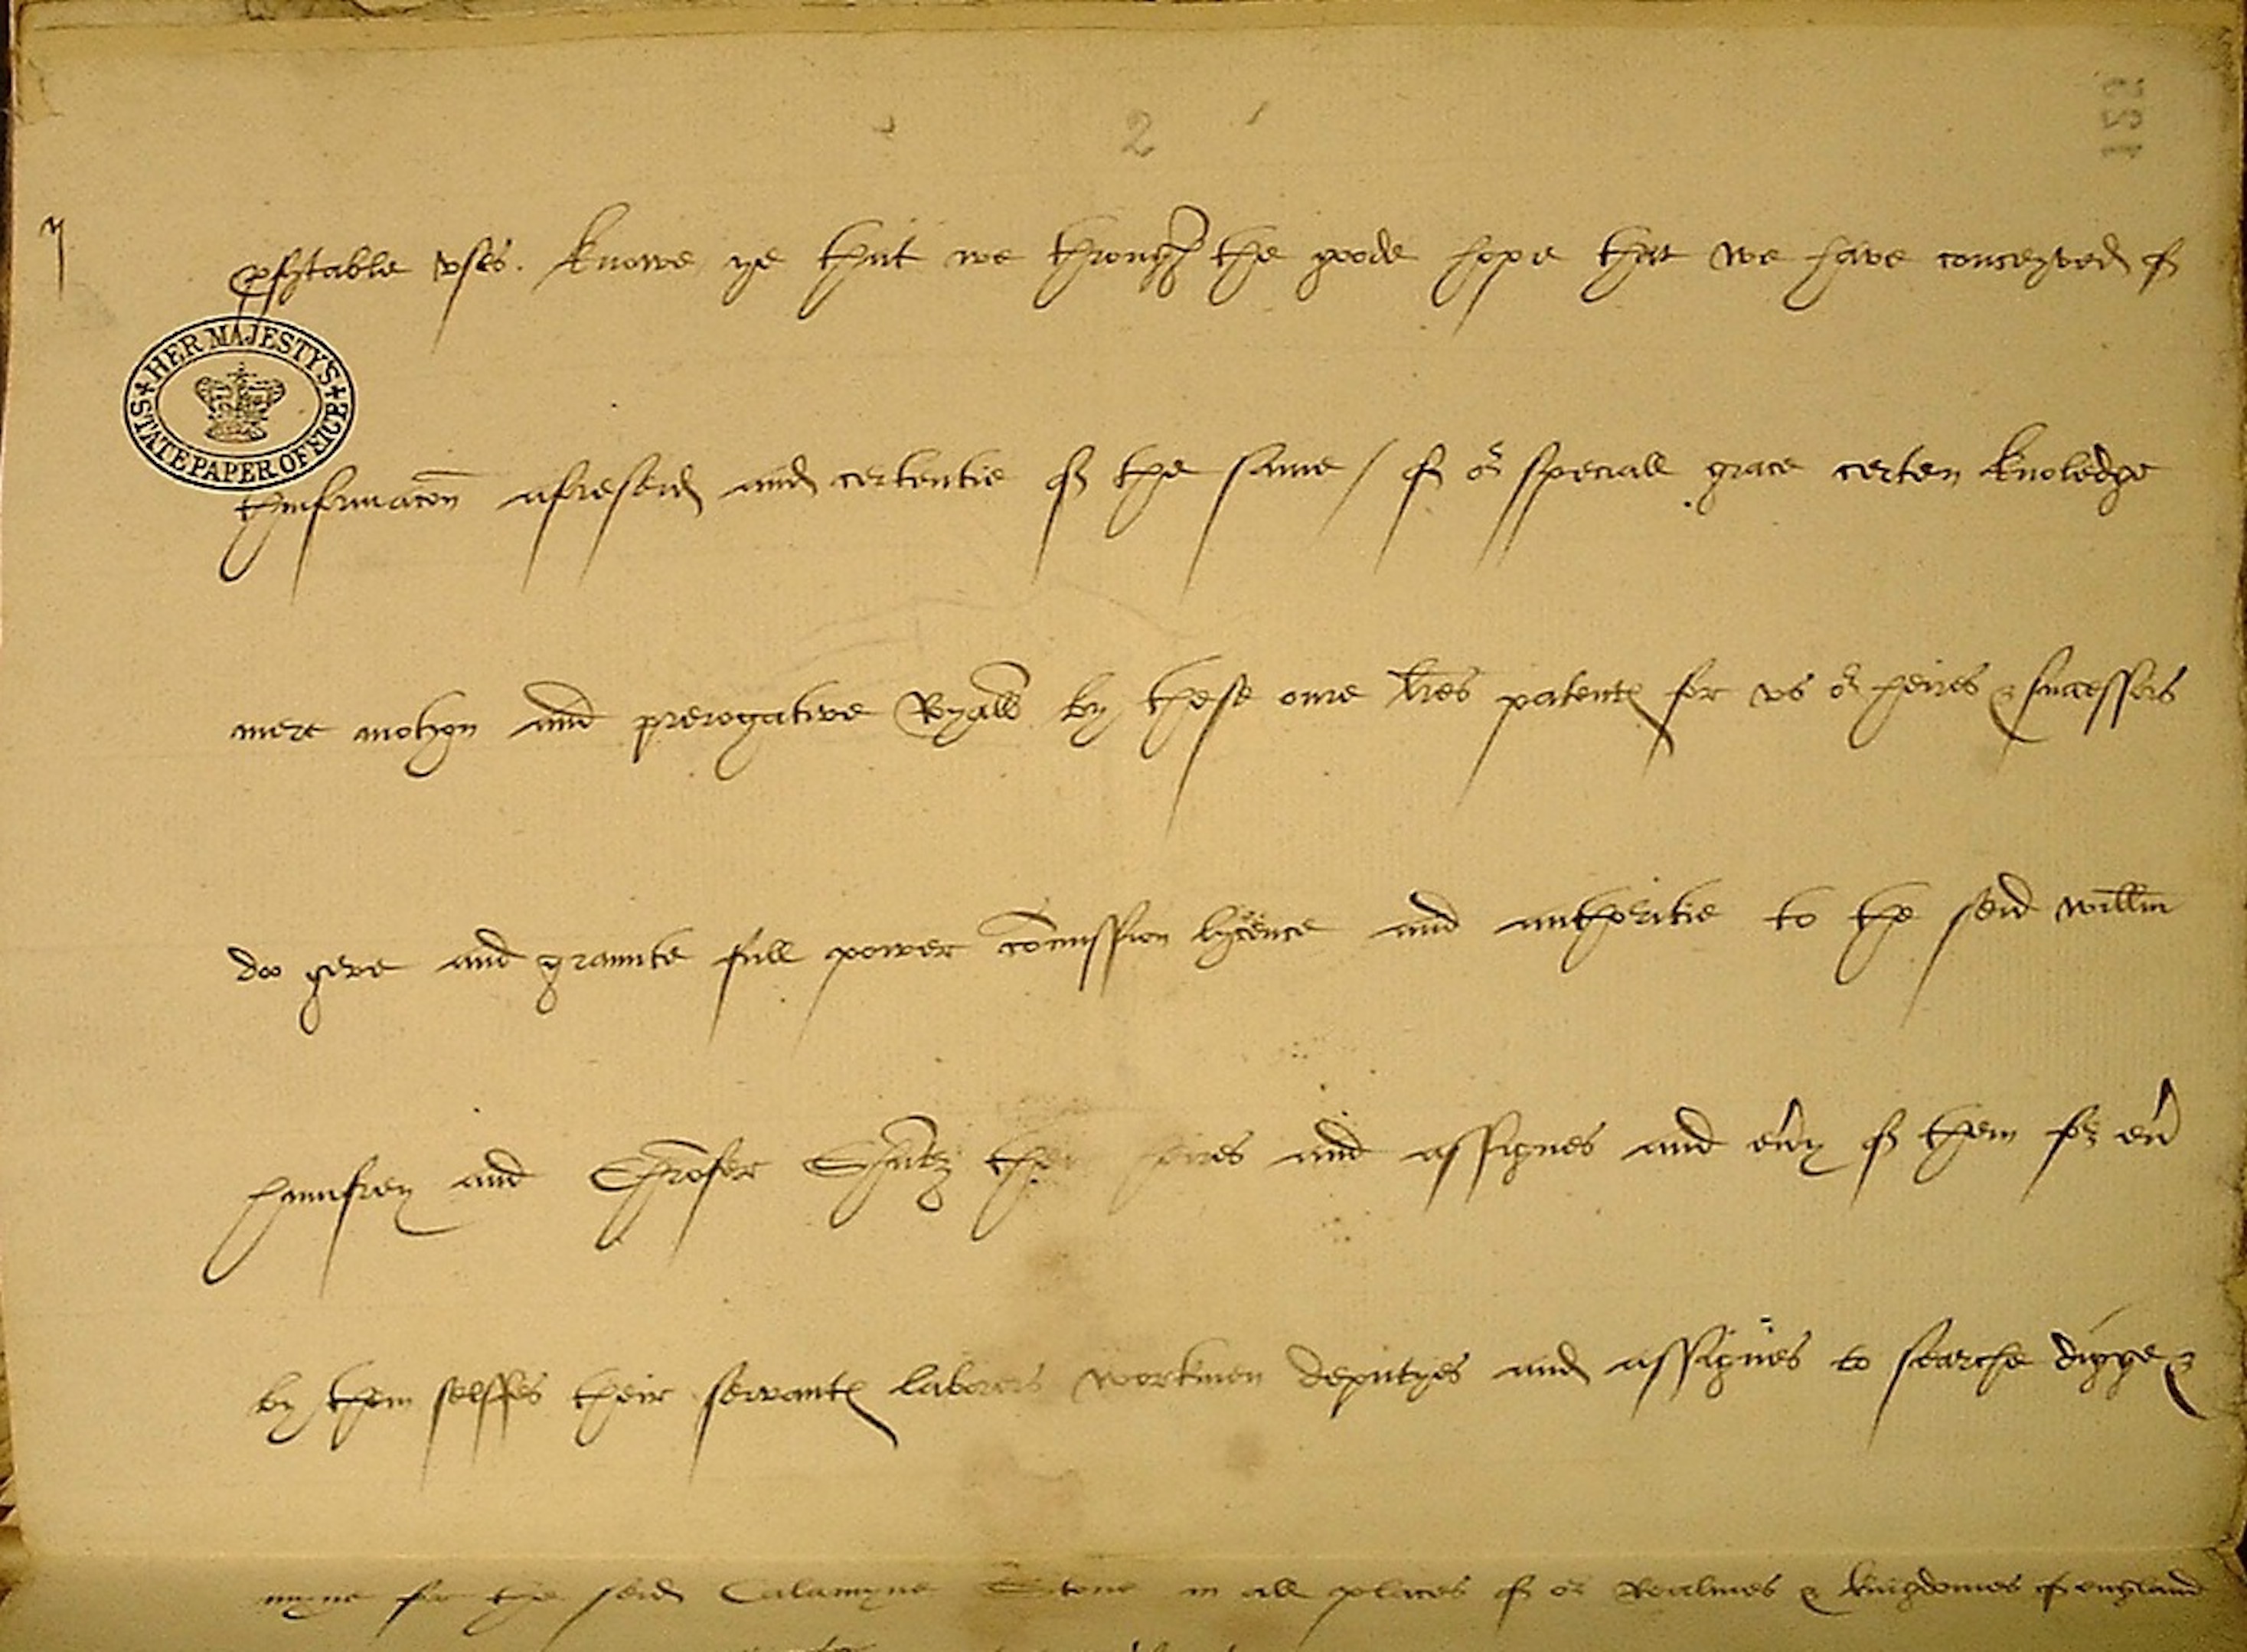 2
125
HER MAJESTY'S
STATE PAPER OFFICE
p̱fytable vses. knowe ye that we through the goode hope that we have conceyved of
thinformac̃on aforeseid and certentie of the same / of or speciall grace certen knoledge
mere motyon and prerogative Royall by these oure l̃res patent℮ for vs or heires & successors
doo geve and graunte full power com̃ission lycence and authoritie to the seid Will̃m
humfrey and Chr̃ofer Shutz their heires and assignes and eũy of them foreũ
by them selffes their servant℮ laborers workmen deputyes and assignes to searche digge &
myne for the seid Calamyne Stone in all places of or Realmes & kingdomes of england